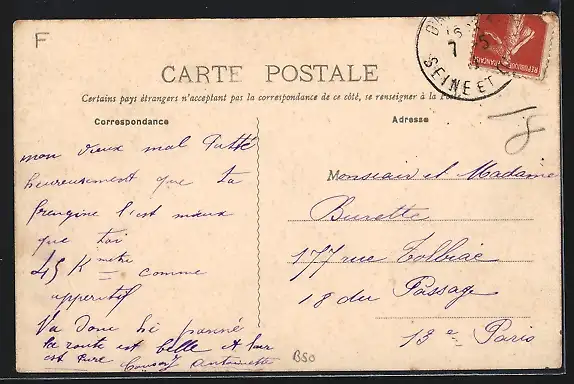 F
CARTE POSTALE
Certains pays étrangers n'acceptant pas la correspondance de ce côté, se renseigner à la
Correspondance
Adresse
mon vieux mal
heureusement que ta
frengine l'est mieux
que toi
45 K metre comme
apperitif
Va Donc hé panné
la route est belle et l'air
est pure Antoinette
Monsieur et Madame
Burette
177 rue Tolbiac
18 du Passage
13e Paris
18
BSO
7 5
SEINE ET
REPUBLIQUE FRANÇAISE